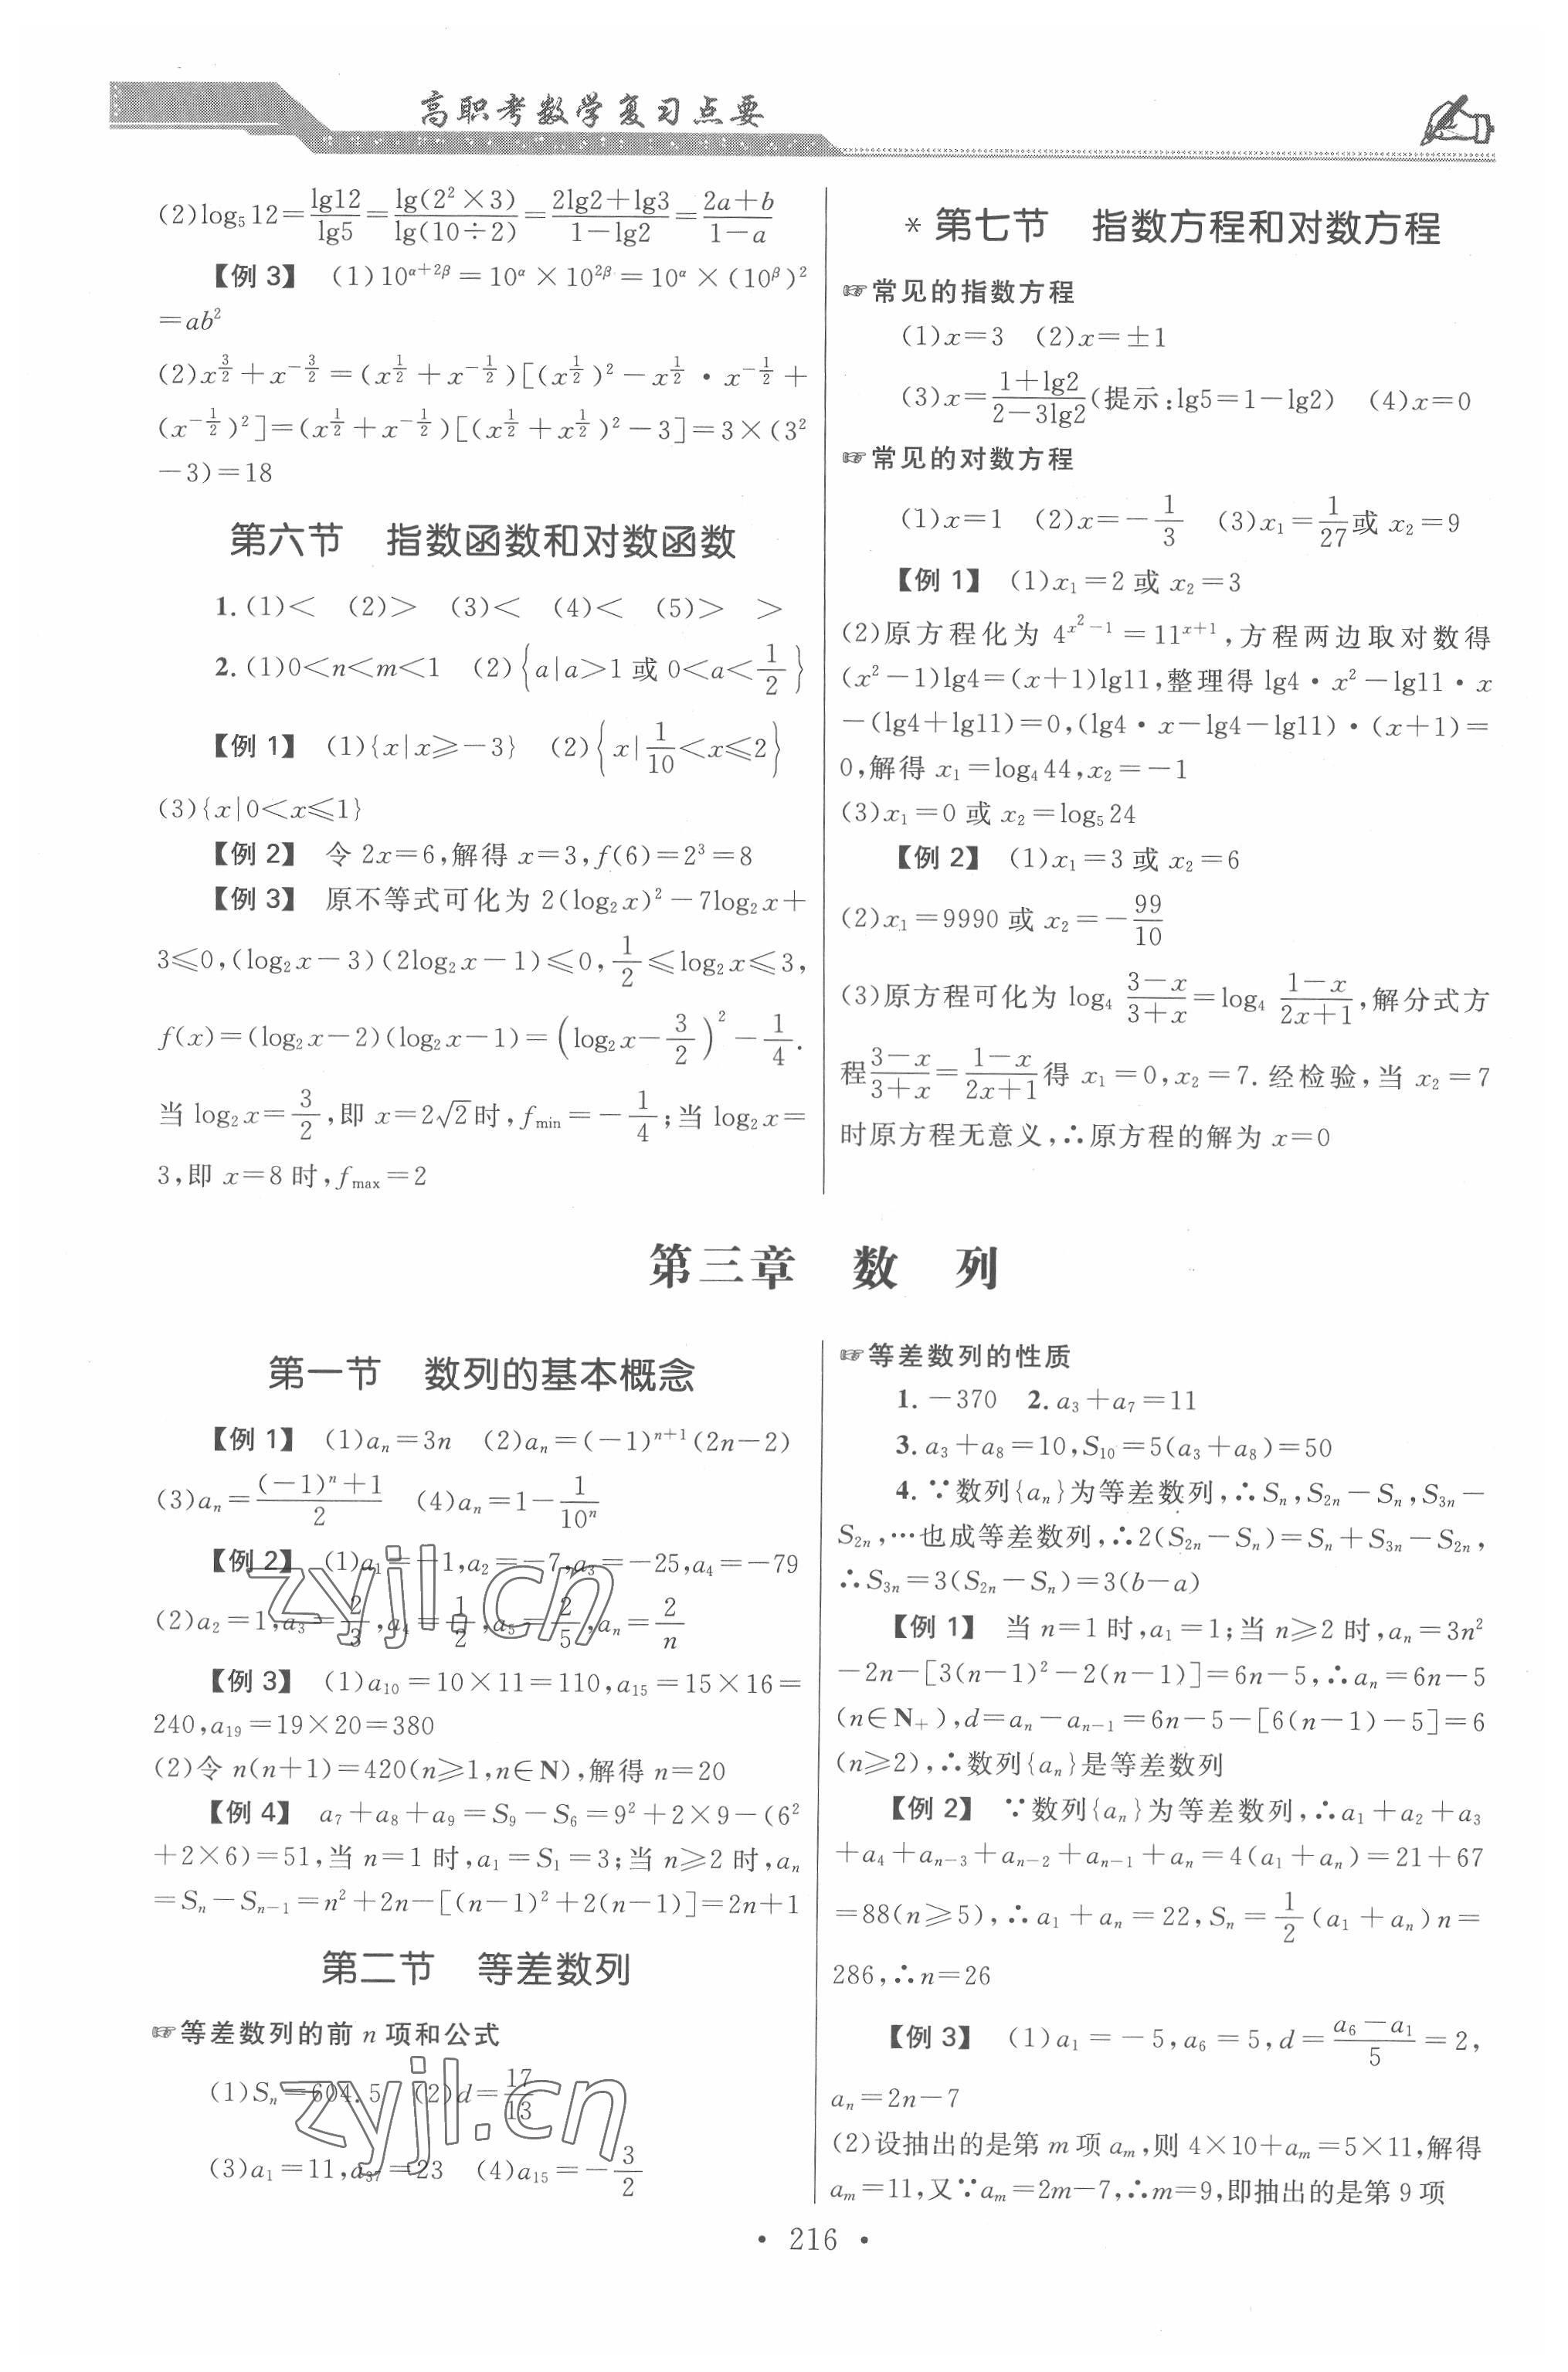 高职考数学复习点要
(2)log₅12=lg12/lg5=lg(2²×3)/lg(10÷2)=(2lg2+lg3)/(1-lg2)=(2a+b)/(1-a)
【例 3】 (1)10^(α+2β)=10^α×10^(2β)=10^α×(10^β)²
=ab²
(2)x^(3/2)+x^(-3/2)=(x^(1/2)+x^(-1/2))[(x^(1/2))²-x^(1/2)·x^(-1/2)+
(x^(-1/2))²]=(x^(1/2)+x^(-1/2))[(x^(1/2)+x^(1/2))²-3]=3×(3²
-3)=18
第六节 指数函数和对数函数
1.(1)< (2)> (3)< (4)< (5)> >
2.(1)0<n<m<1 (2){a|a>1 或 0<a<1/2}
【例 1】 (1){x|x≥-3} (2){x|1/10<x≤2}
(3){x|0<x≤1}
【例 2】 令 2x=6,解得 x=3,f(6)=2³=8
【例 3】 原不等式可化为 2(log₂x)²-7log₂x+
3≤0,(log₂x-3)(2log₂x-1)≤0,1/2≤log₂x≤3,
f(x)=(log₂x-2)(log₂x-1)=(log₂x-3/2)²-1/4.
当 log₂x=3/2,即 x=2√2时,f_min=-1/4;当 log₂x=
3,即 x=8 时,f_max=2
*第七节 指数方程和对数方程
☞常见的指数方程
(1)x=3 (2)x=±1
(3)x=(1+lg2)/(2-3lg2)(提示:lg5=1-lg2) (4)x=0
☞常见的对数方程
(1)x=1 (2)x=-1/3 (3)x₁=1/27或 x₂=9
【例 1】 (1)x₁=2 或 x₂=3
(2)原方程化为 4^(x²-1)=11^(x+1),方程两边取对数得
(x²-1)lg4=(x+1)lg11,整理得 lg4·x²-lg11·x
-(lg4+lg11)=0,(lg4·x-lg4-lg11)·(x+1)=
0,解得 x₁=log₄44,x₂=-1
(3)x₁=0 或 x₂=log₅24
【例 2】 (1)x₁=3 或 x₂=6
(2)x₁=9990 或 x₂=-99/10
(3)原方程可化为 log₄ (3-x)/(3+x)=log₄ (1-x)/(2x+1),解分式方
程(3-x)/(3+x)=(1-x)/(2x+1)得 x₁=0,x₂=7.经检验,当 x₂=7
时原方程无意义,∴原方程的解为 x=0
第三章 数 列
第一节 数列的基本概念
【例 1】 (1)aₙ=3n (2)aₙ=(-1)^(n+1)(2n-2)
(3)aₙ=((-1)ⁿ+1)/2 (4)aₙ=1-1/10ⁿ
【例 2】 (1)a₁=-1,a₂=-7,a₃=-25,a₄=-79
(2)a₂=1,a₃=2/3,a₄=1/2,a₅=2/5,aₙ=2/n
【例 3】 (1)a₁₀=10×11=110,a₁₅=15×16=
240,a₁₉=19×20=380
(2)令 n(n+1)=420(n≥1,n∈N),解得 n=20
【例 4】 a₇+a₈+a₉=S₉-S₆=9²+2×9-(6²
+2×6)=51,当 n=1 时,a₁=S₁=3;当 n≥2 时,aₙ
=Sₙ-Sₙ₋₁=n²+2n-[(n-1)²+2(n-1)]=2n+1
第二节 等差数列
☞等差数列的前 n 项和公式
(1)Sₙ=604.5 (2)d=17/13
(3)a₁=11,a₃₇=23 (4)a₁₅=-3/2
☞等差数列的性质
1.-370 2.a₃+a₇=11
3.a₃+a₈=10,S₁₀=5(a₃+a₈)=50
4.∵数列{aₙ}为等差数列,∴Sₙ,S₂ₙ-Sₙ,S₃ₙ-
S₂ₙ,…也成等差数列,∴2(S₂ₙ-Sₙ)=Sₙ+S₃ₙ-S₂ₙ,
∴S₃ₙ=3(S₂ₙ-Sₙ)=3(b-a)
【例 1】 当 n=1 时,a₁=1;当 n≥2 时,aₙ=3n²
-2n-[3(n-1)²-2(n-1)]=6n-5,∴aₙ=6n-5
(n∈N₊),d=aₙ-aₙ₋₁=6n-5-[6(n-1)-5]=6
(n≥2),∴数列{aₙ}是等差数列
【例 2】 ∵数列{aₙ}为等差数列,∴a₁+a₂+a₃
+a₄+aₙ₋₃+aₙ₋₂+aₙ₋₁+aₙ=4(a₁+aₙ)=21+67
=88(n≥5),∴a₁+aₙ=22,Sₙ=1/2(a₁+aₙ)n=
286,∴n=26
【例 3】 (1)a₁=-5,a₆=5,d=(a₆-a₁)/5=2,
aₙ=2n-7
(2)设抽出的是第 m 项 aₘ,则 4×10+aₘ=5×11,解得
aₘ=11,又∵aₘ=2m-7,∴m=9,即抽出的是第 9 项
zyjl.cn
zyjl.cn
· 216 ·